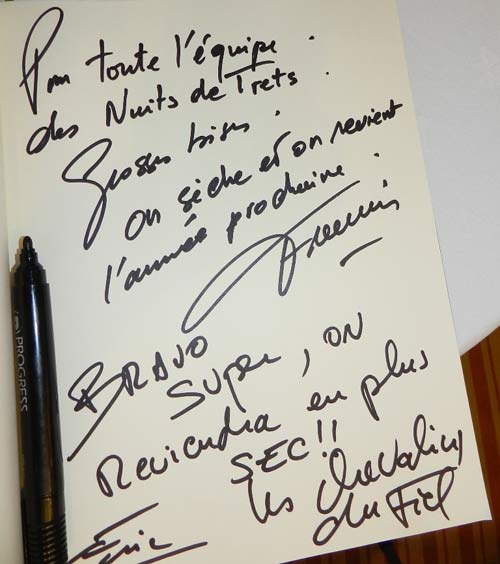 Pour toute l'équipe
des Nuits de Trets.
Grosses bises.
on sèche et on revient
l'année prochaine.
Francis
BRAVO
Super, ON
Reviendra en plus
SEC!!
Les chevaliers
du Fiel
Eric
PROGRESS